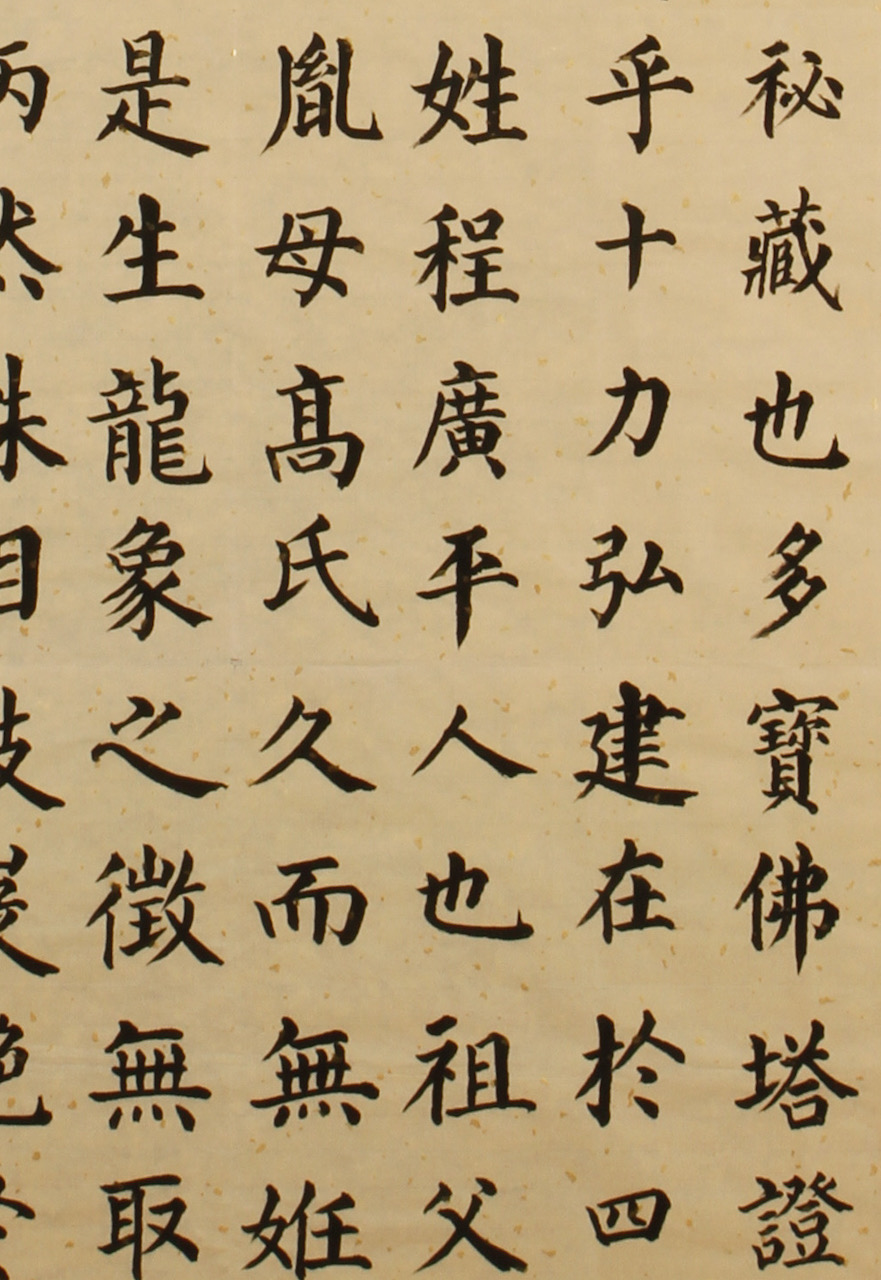 祕藏也多寶佛塔證
乎十力弘建在於四
姓程廣平人也祖父
胤母髙氏久而無姙
是生龍象之徵無取